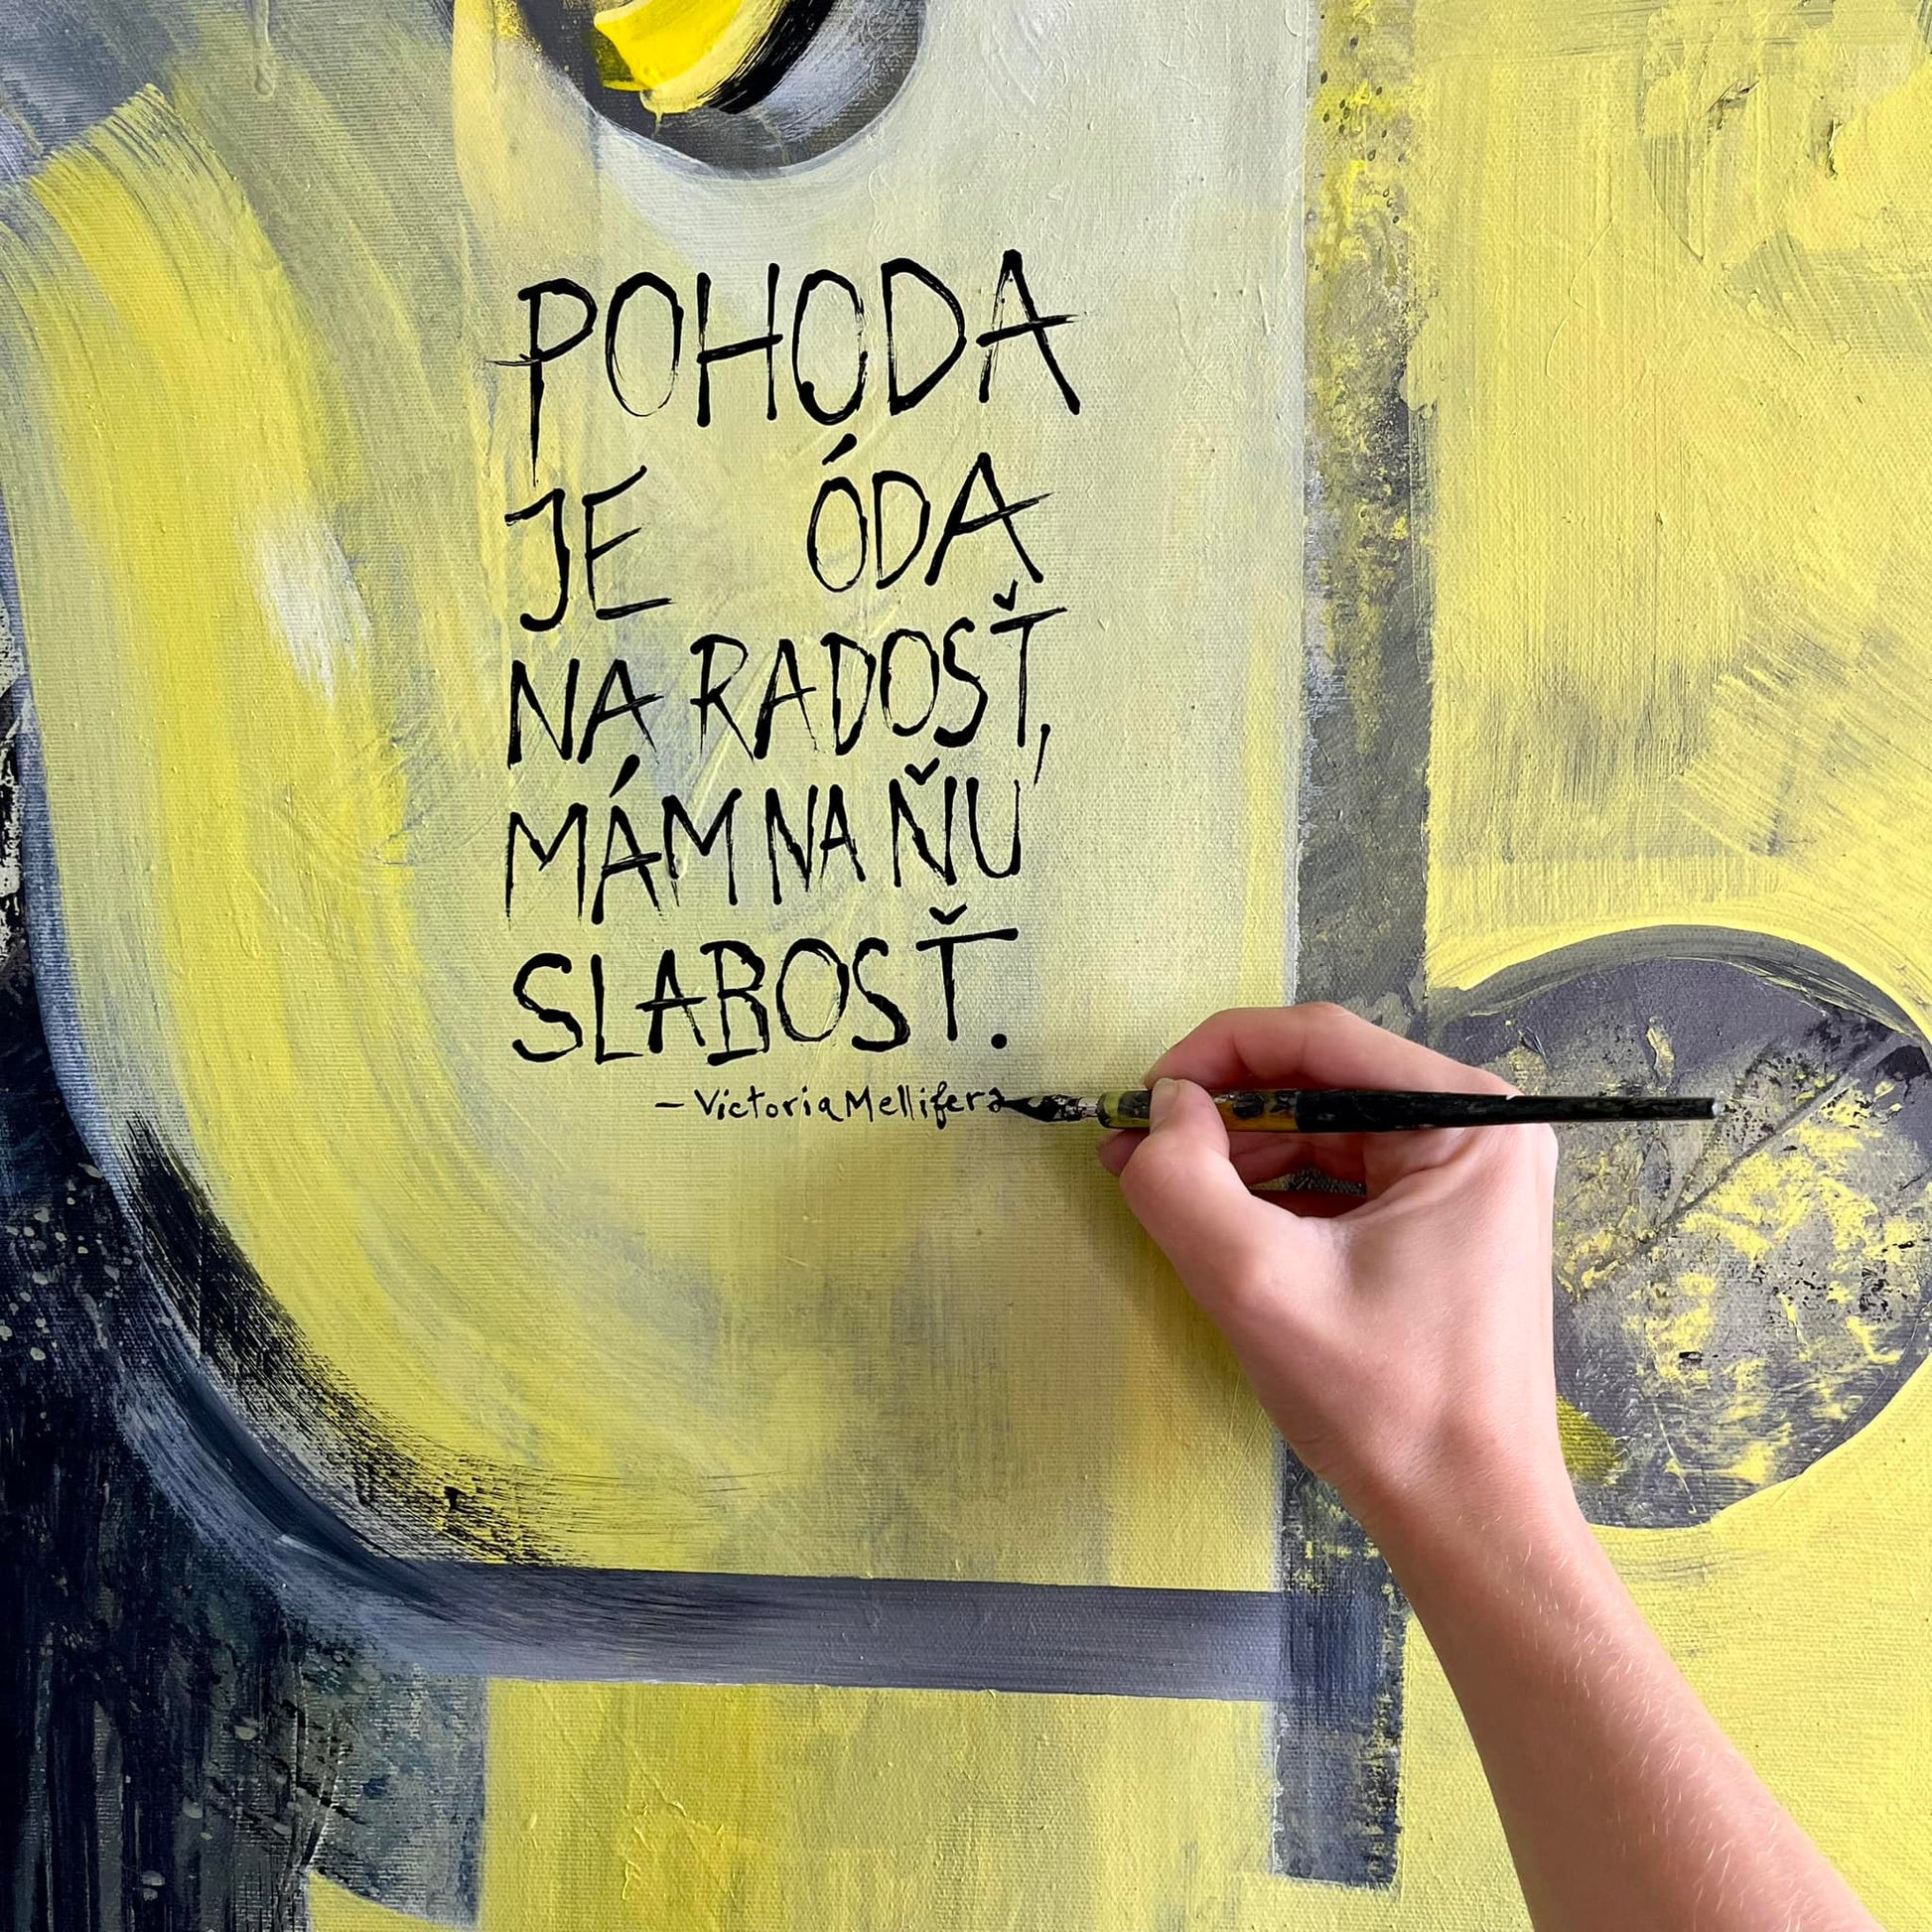 POHODA
JE ÓDA
NA RADOSŤ,
MÁM NA ŇU
SLABOSŤ.
– Victoria Mellifera